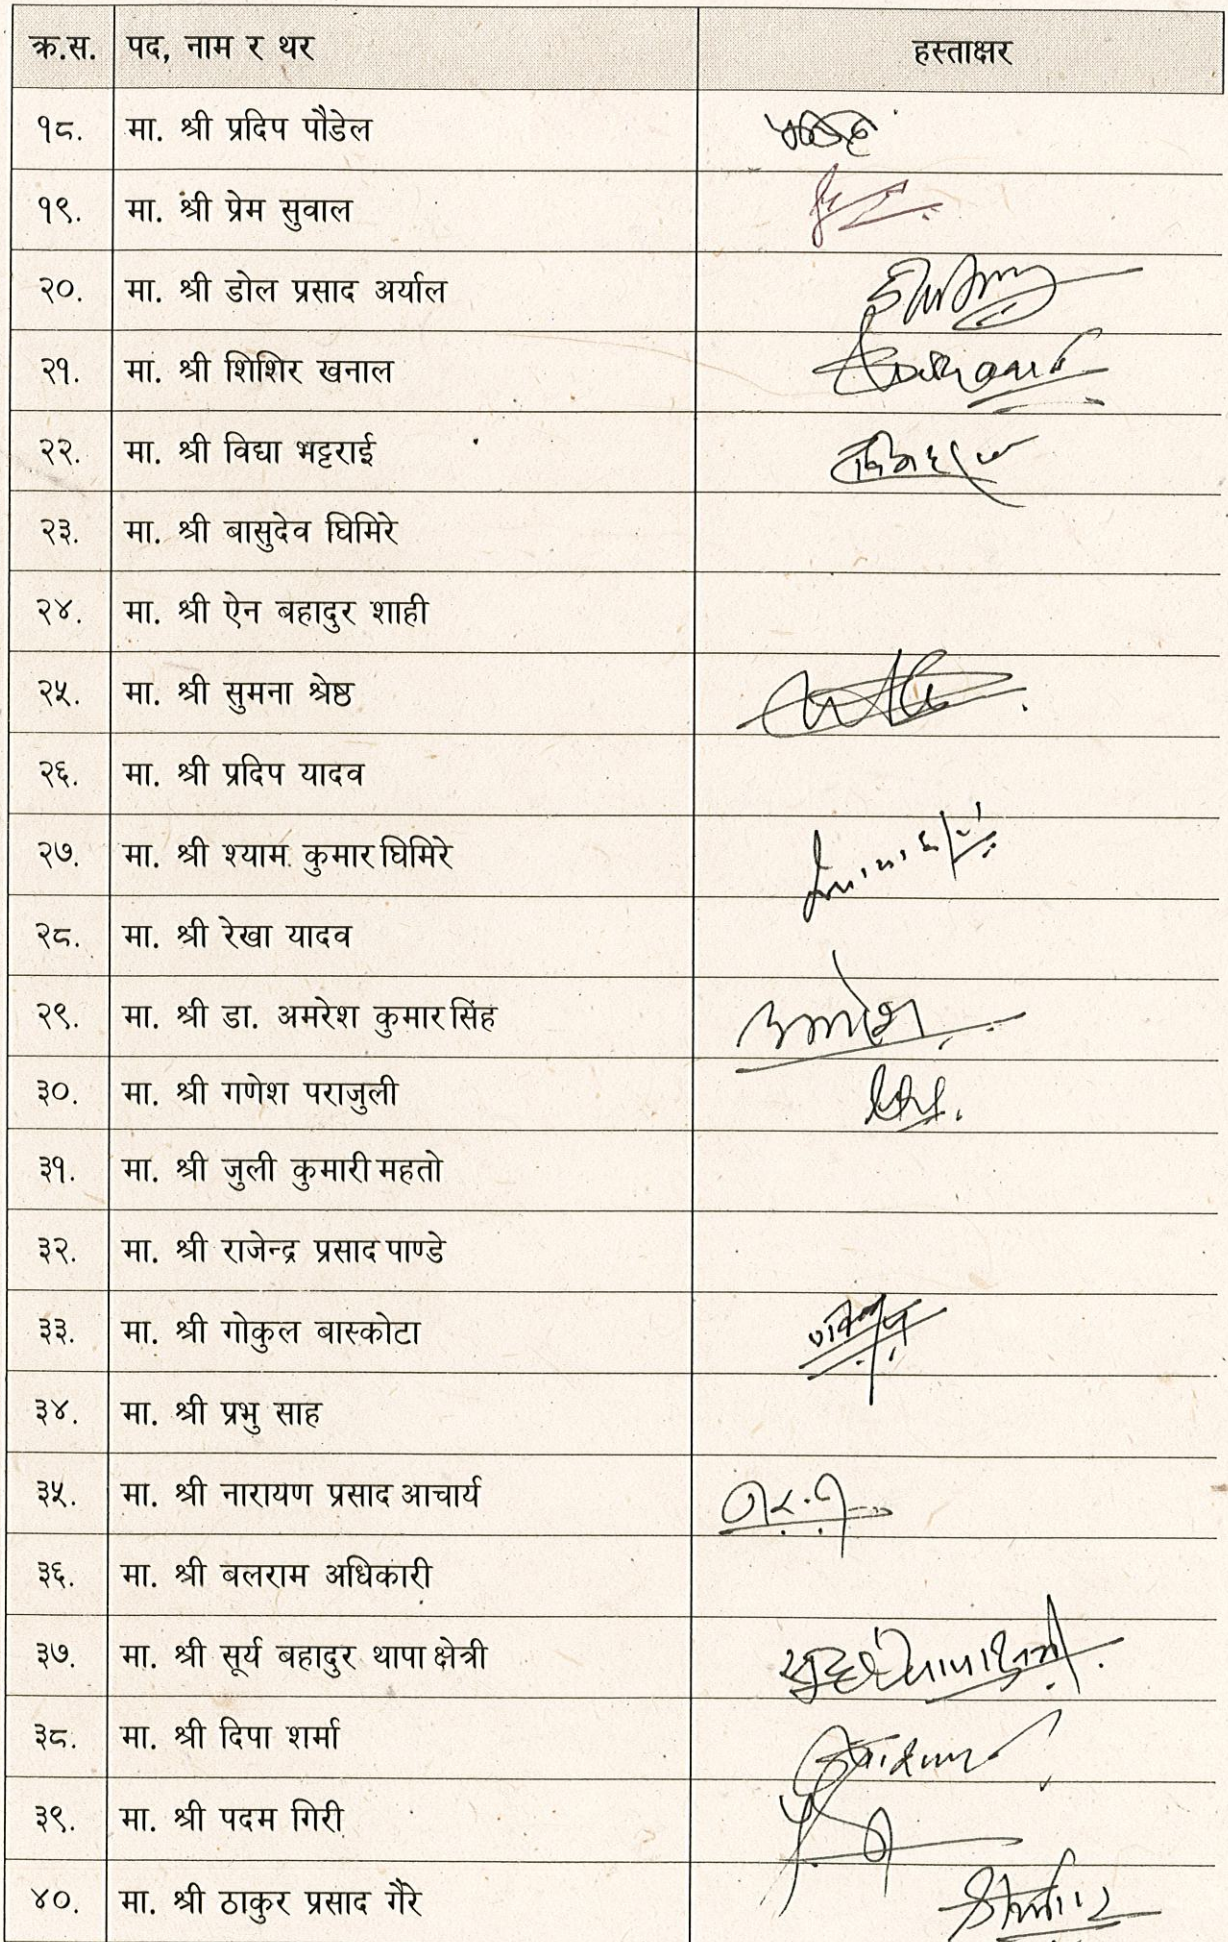 क्र.स. पद, नाम र थर हस्ताक्षर
१८. मा. श्री प्रदिप पौडेल
१९. मा. श्री प्रेम सुवाल
२०. मा. श्री डोल प्रसाद अर्याल
२१. मा. श्री शिशिर खनाल
२२. मा. श्री विद्या भट्टराई
२३. मा. श्री बासुदेव घिमिरे
२४. मा. श्री ऐन बहादुर शाही
२५. मा. श्री सुमना श्रेष्ठ
२६. मा. श्री प्रदिप यादव
२७. मा. श्री श्याम कुमार घिमिरे
२८. मा. श्री रेखा यादव
२९. मा. श्री डा. अमरेश कुमार सिंह
३०. मा. श्री गणेश पराजुली
३१. मा. श्री जुली कुमारी महतो
३२. मा. श्री राजेन्द्र प्रसाद पाण्डे
३३. मा. श्री गोकुल बास्कोटा
३४. मा. श्री प्रभु साह
३५. मा. श्री नारायण प्रसाद आचार्य
३६. मा. श्री बलराम अधिकारी
३७. मा. श्री सूर्य बहादुर थापा क्षेत्री
३८. मा. श्री दिपा शर्मा
३९. मा. श्री पदम गिरी
४०. मा. श्री ठाकुर प्रसाद गैरे